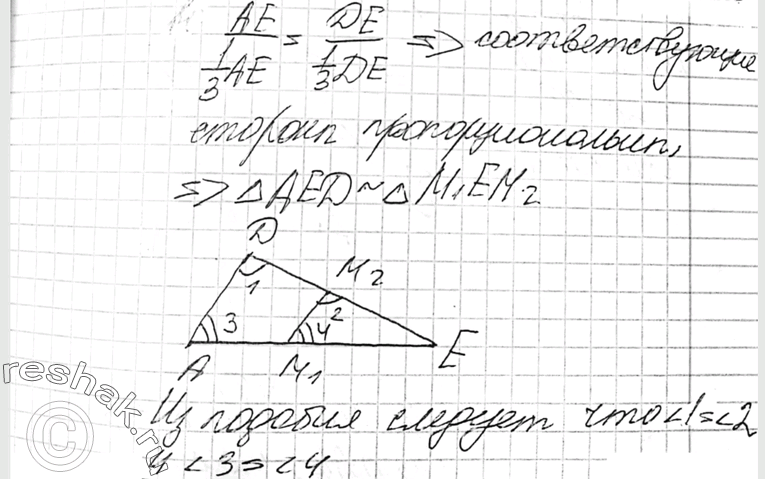 AE/(1/3 AE) = DE/(1/3 DE) => соответствующие
стороны пропорциональны,
=> △AED ~ △M₁EM₂
D
M₂
1
2
3
4
A
M₁
E
reshak.ru
©
Из подобия следует что <1=<2
и <3=<4